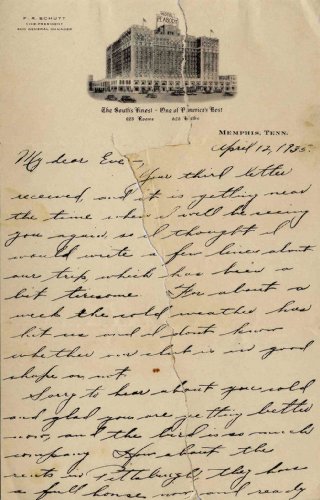 F. R. SCHUTT
VICE-PRESIDENT
AND GENERAL MANAGER
HOTEL
PEABODY
The South's Finest - One of America's Best
625 Rooms 625 Baths
MEMPHIS, TENN.
April 12, 1935.
My dear Eve
Your third letter
received, and it is getting near
the time when I will be seeing
you again so I thought I
would write a few lines about
our trip which has been a
bit tiresome. For about a
week the cold weather has
hit us and I dont know
whether our club is in good
shape or not.
Sorry to hear about your cold
and glad you are getting better
now, and the bird is so much
company. How about the
rents in Pittsburgh they have
a full house now, and ready